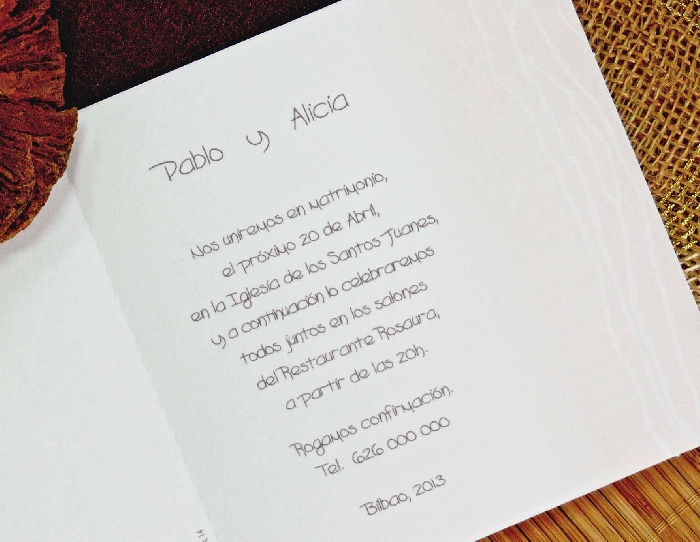 Pablo y Alicia
Nos uniremos en matrimonio,
el próximo 20 de Abril,
en la Iglesia de los Santos Juanes,
y a continuación lo celebraremos
todos juntos en los salones
del Restaurante Rosaura,
a partir de las 20h.
Rogamos confirmación.
Tel. 626 000 000
Bilbao, 2013